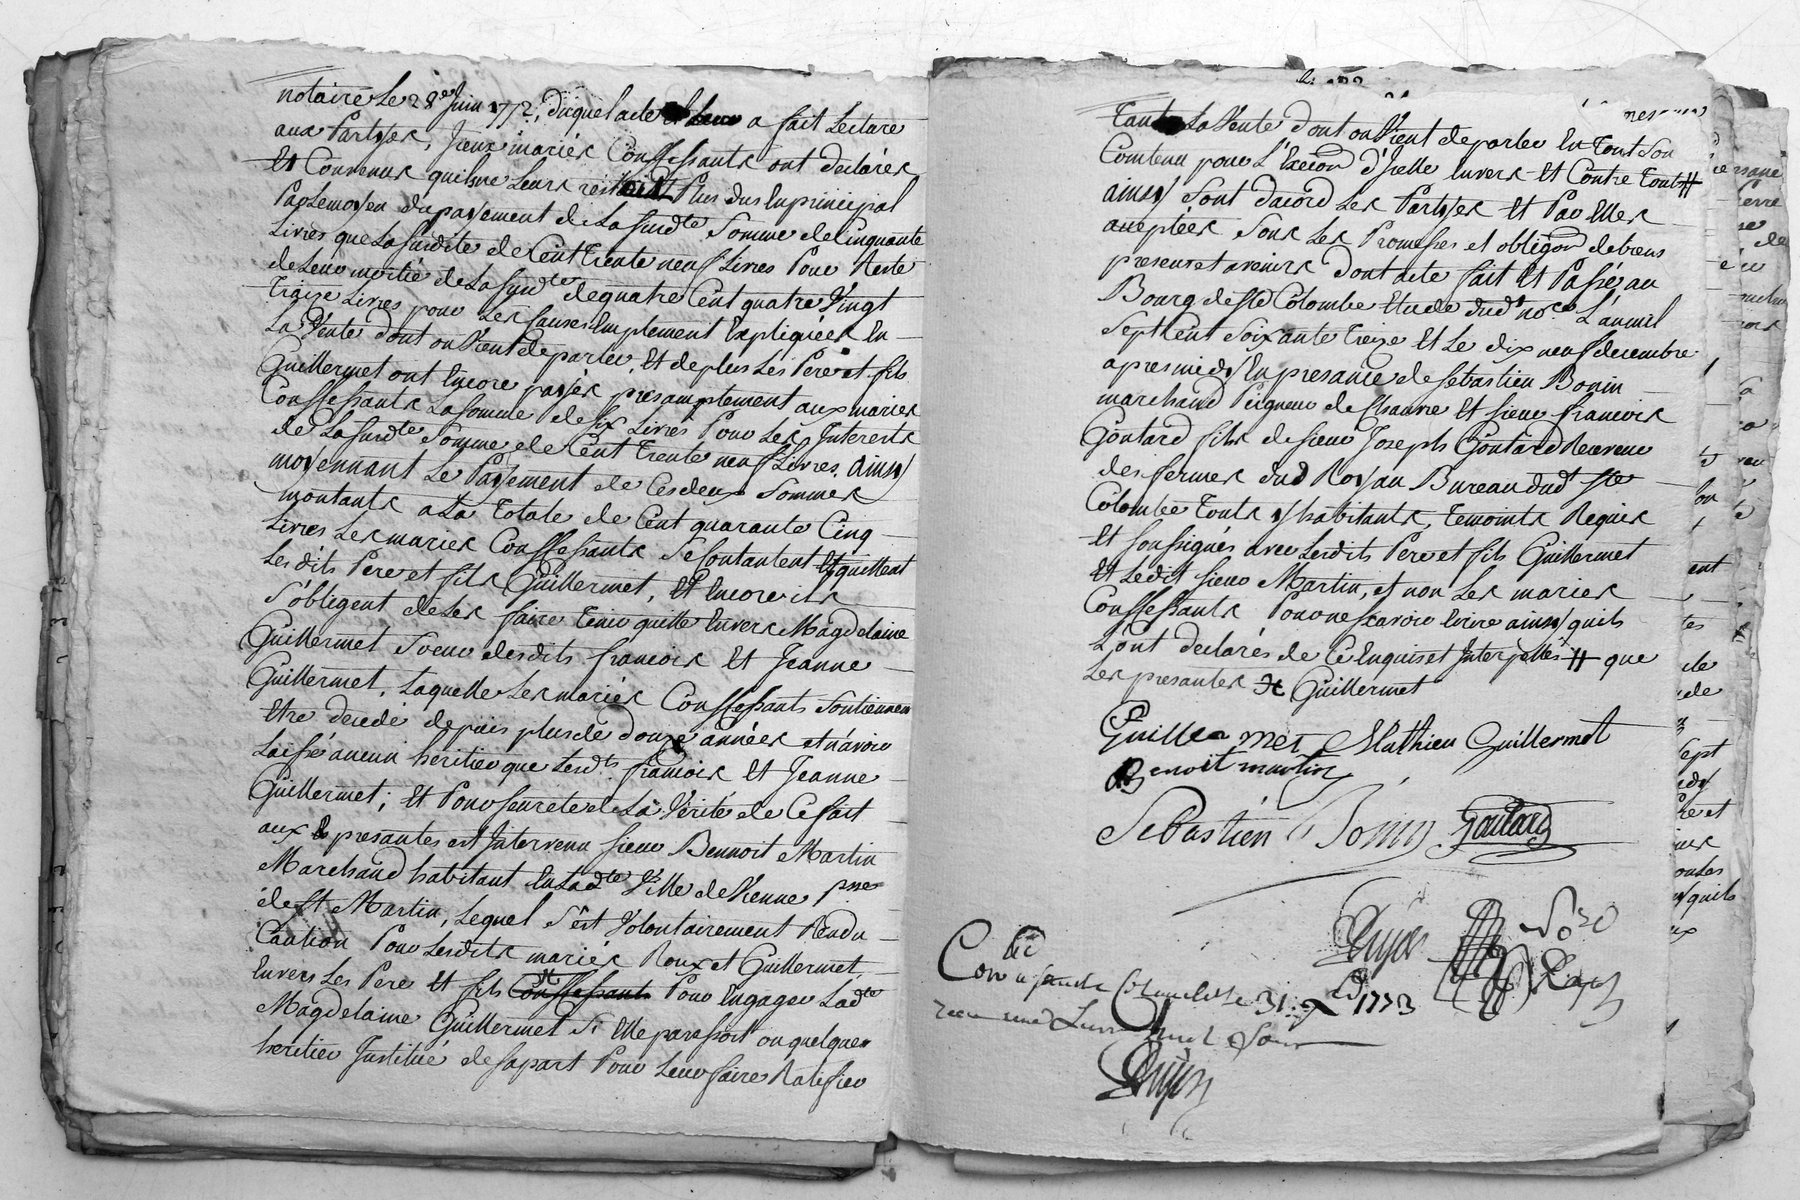 notaire le 28e Juin 1772, duquel acte a fait lecture
aux Partyes, Iceux mariés Confessants ont declarés
Et Convenus quil ne leurs reste Plus dus En principal
Par le moyen du payement de La susdte Somme de Cinquante
Livres que La susdite de Cent trente neuf Livres Pour Reste
de Leur moitié de La susdte de quatre Cent quatre Vingt
traize Livres pour Les causes Emplement Expliquées En
La Vente dont on Vient de parler, Et de plus Les Pere et fils
Guillermet ont Encore payés presamptement aux mariés
Confessants La somme de six Livres Pour Les Interests
de La susdte Somme de Cent trente neuf Livres, ainsy
moyennant Le Payement de Ces deux Sommes
montants a La totale de Cent quarante Cinq
Livres Les mariés Confessants Se Contantent Et quittent
Lesdits Pere et fils Guillermet, Et Encore ils
S'obligent de Les faire tenir quitte Envers Magdelaine
Guillermet Soeur desdits francois Et Jeanne
Guillermet, Laquelle Les mariés Confessants Soutiennent
Etre decedé depuis plus de douze années et n'avoir
Laissé aucun heritier que Lesdts francois Et Jeanne
Guillermet; Et Pour seureté de La Verité de Ce fait
aux presantes est Intervenu sieur Bennoit Martin
Marchand habitant En Ladte Ville de Vienne psse
de St Martin, Lequel S'est Volontairement Rendu
Caution Pour Lesdits mariés Roux et Guillermet,
Envers Les Pere Et fils Confessants Pour Engager Ladte
Magdelaine Guillermet Si Elle paressoit ou quelques
heritier Institué de sa part Pour Leur faire Ratifier
tant La Vente dont on Vient de parler En tout Son
Contenu pour L'Execon d'Icelle Envers Et Contre touts
ainsy Sont dacord Les Partyes Et Par Elles
aceptées Sous Les Promesses et obligaon de biens
presents et avenirs dont acte fait Et Passé au
Bourg de Ste Colombe Etude dudt nore L'an mil
Sept Cent Soixante treize Et Le dix neuf decembre
apres midy En presance de Sebastien Bonin
marchand Peigneur de Chanvre Et sieur francois
Goutard fils de sieur Joseph Goutard Receveur
des fermes du Roy au Bureau dudt Ste
Colombe touts y habitants, temoints Requis
Et soussignés avec Lesdits Pere et fils Guillermet
Et Ledit sieur Martin, et non Les mariés
Confessants Pour ne scavoir Ecrire ainsy quils
L'ont declarés de Ce Enquis et Interpellés # que
Les presantes Guillermet
Guillermet Mathieu Guillermet
Benoit martin
Sebastien Bonin Goutard
Conlé
31 1773